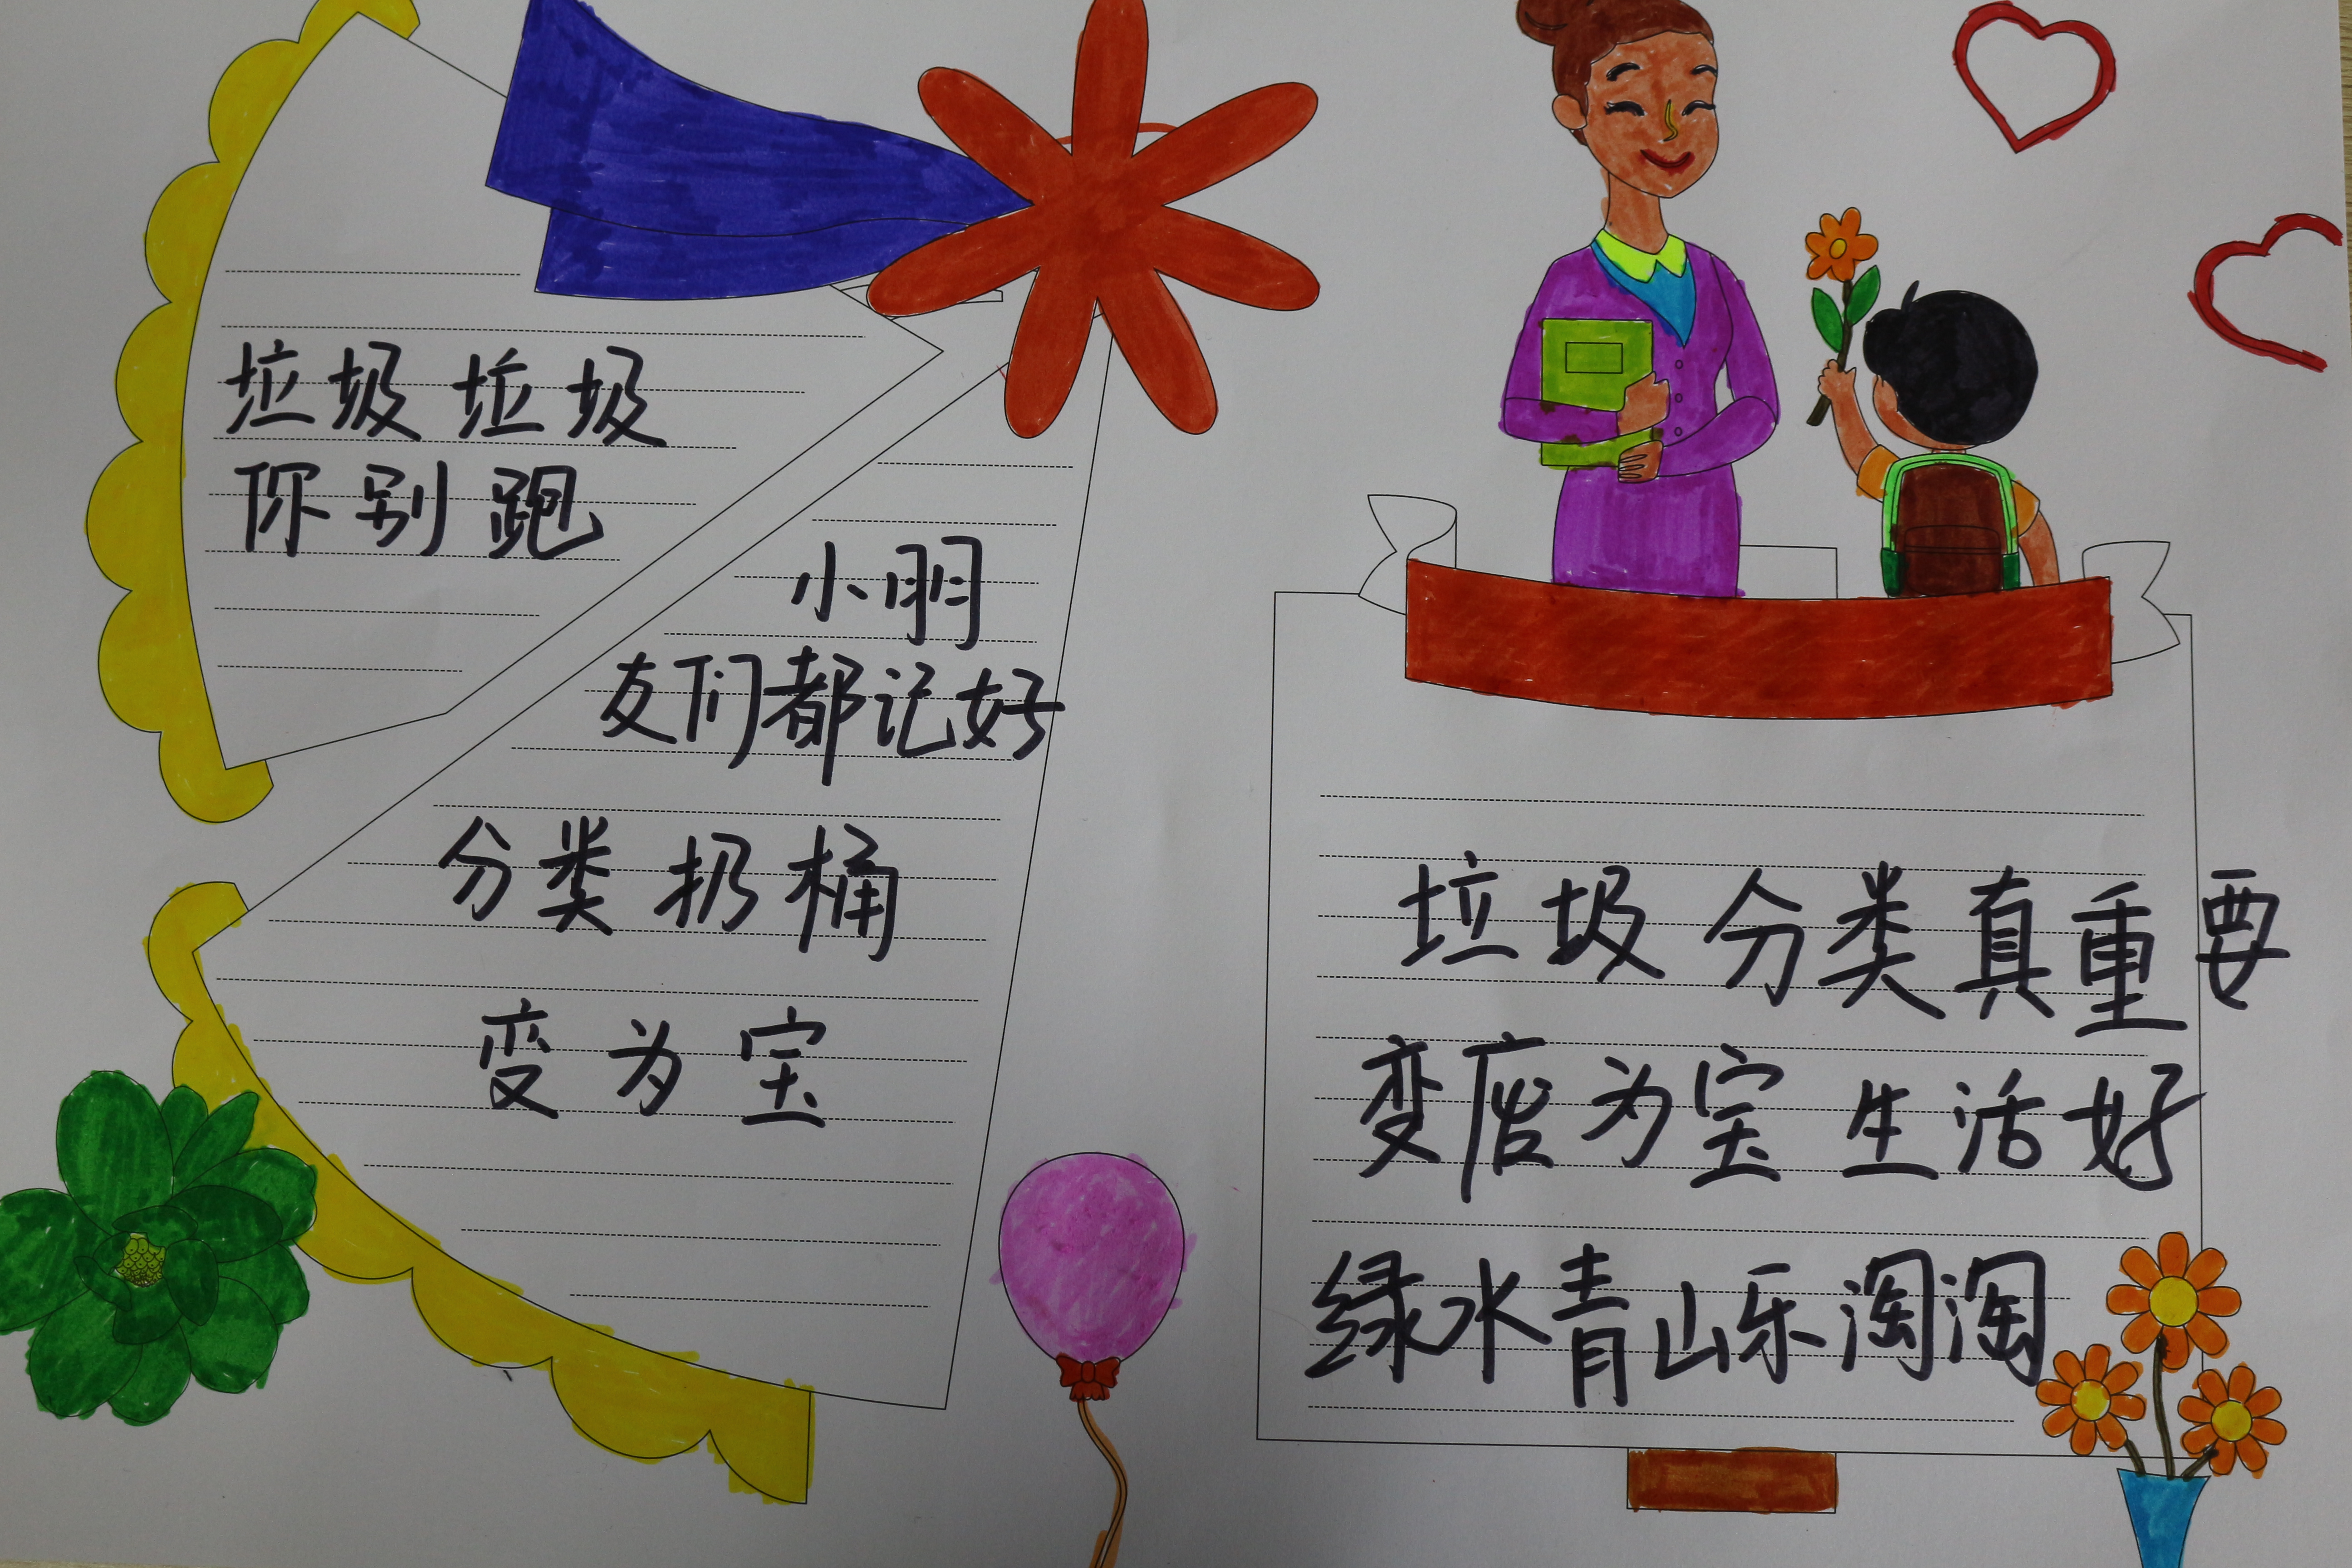 垃圾垃圾
你别跑
小朋
友们都记好
分类扔桶
变为宝
垃圾分类真重要
变废为宝生活好
绿水青山乐淘淘